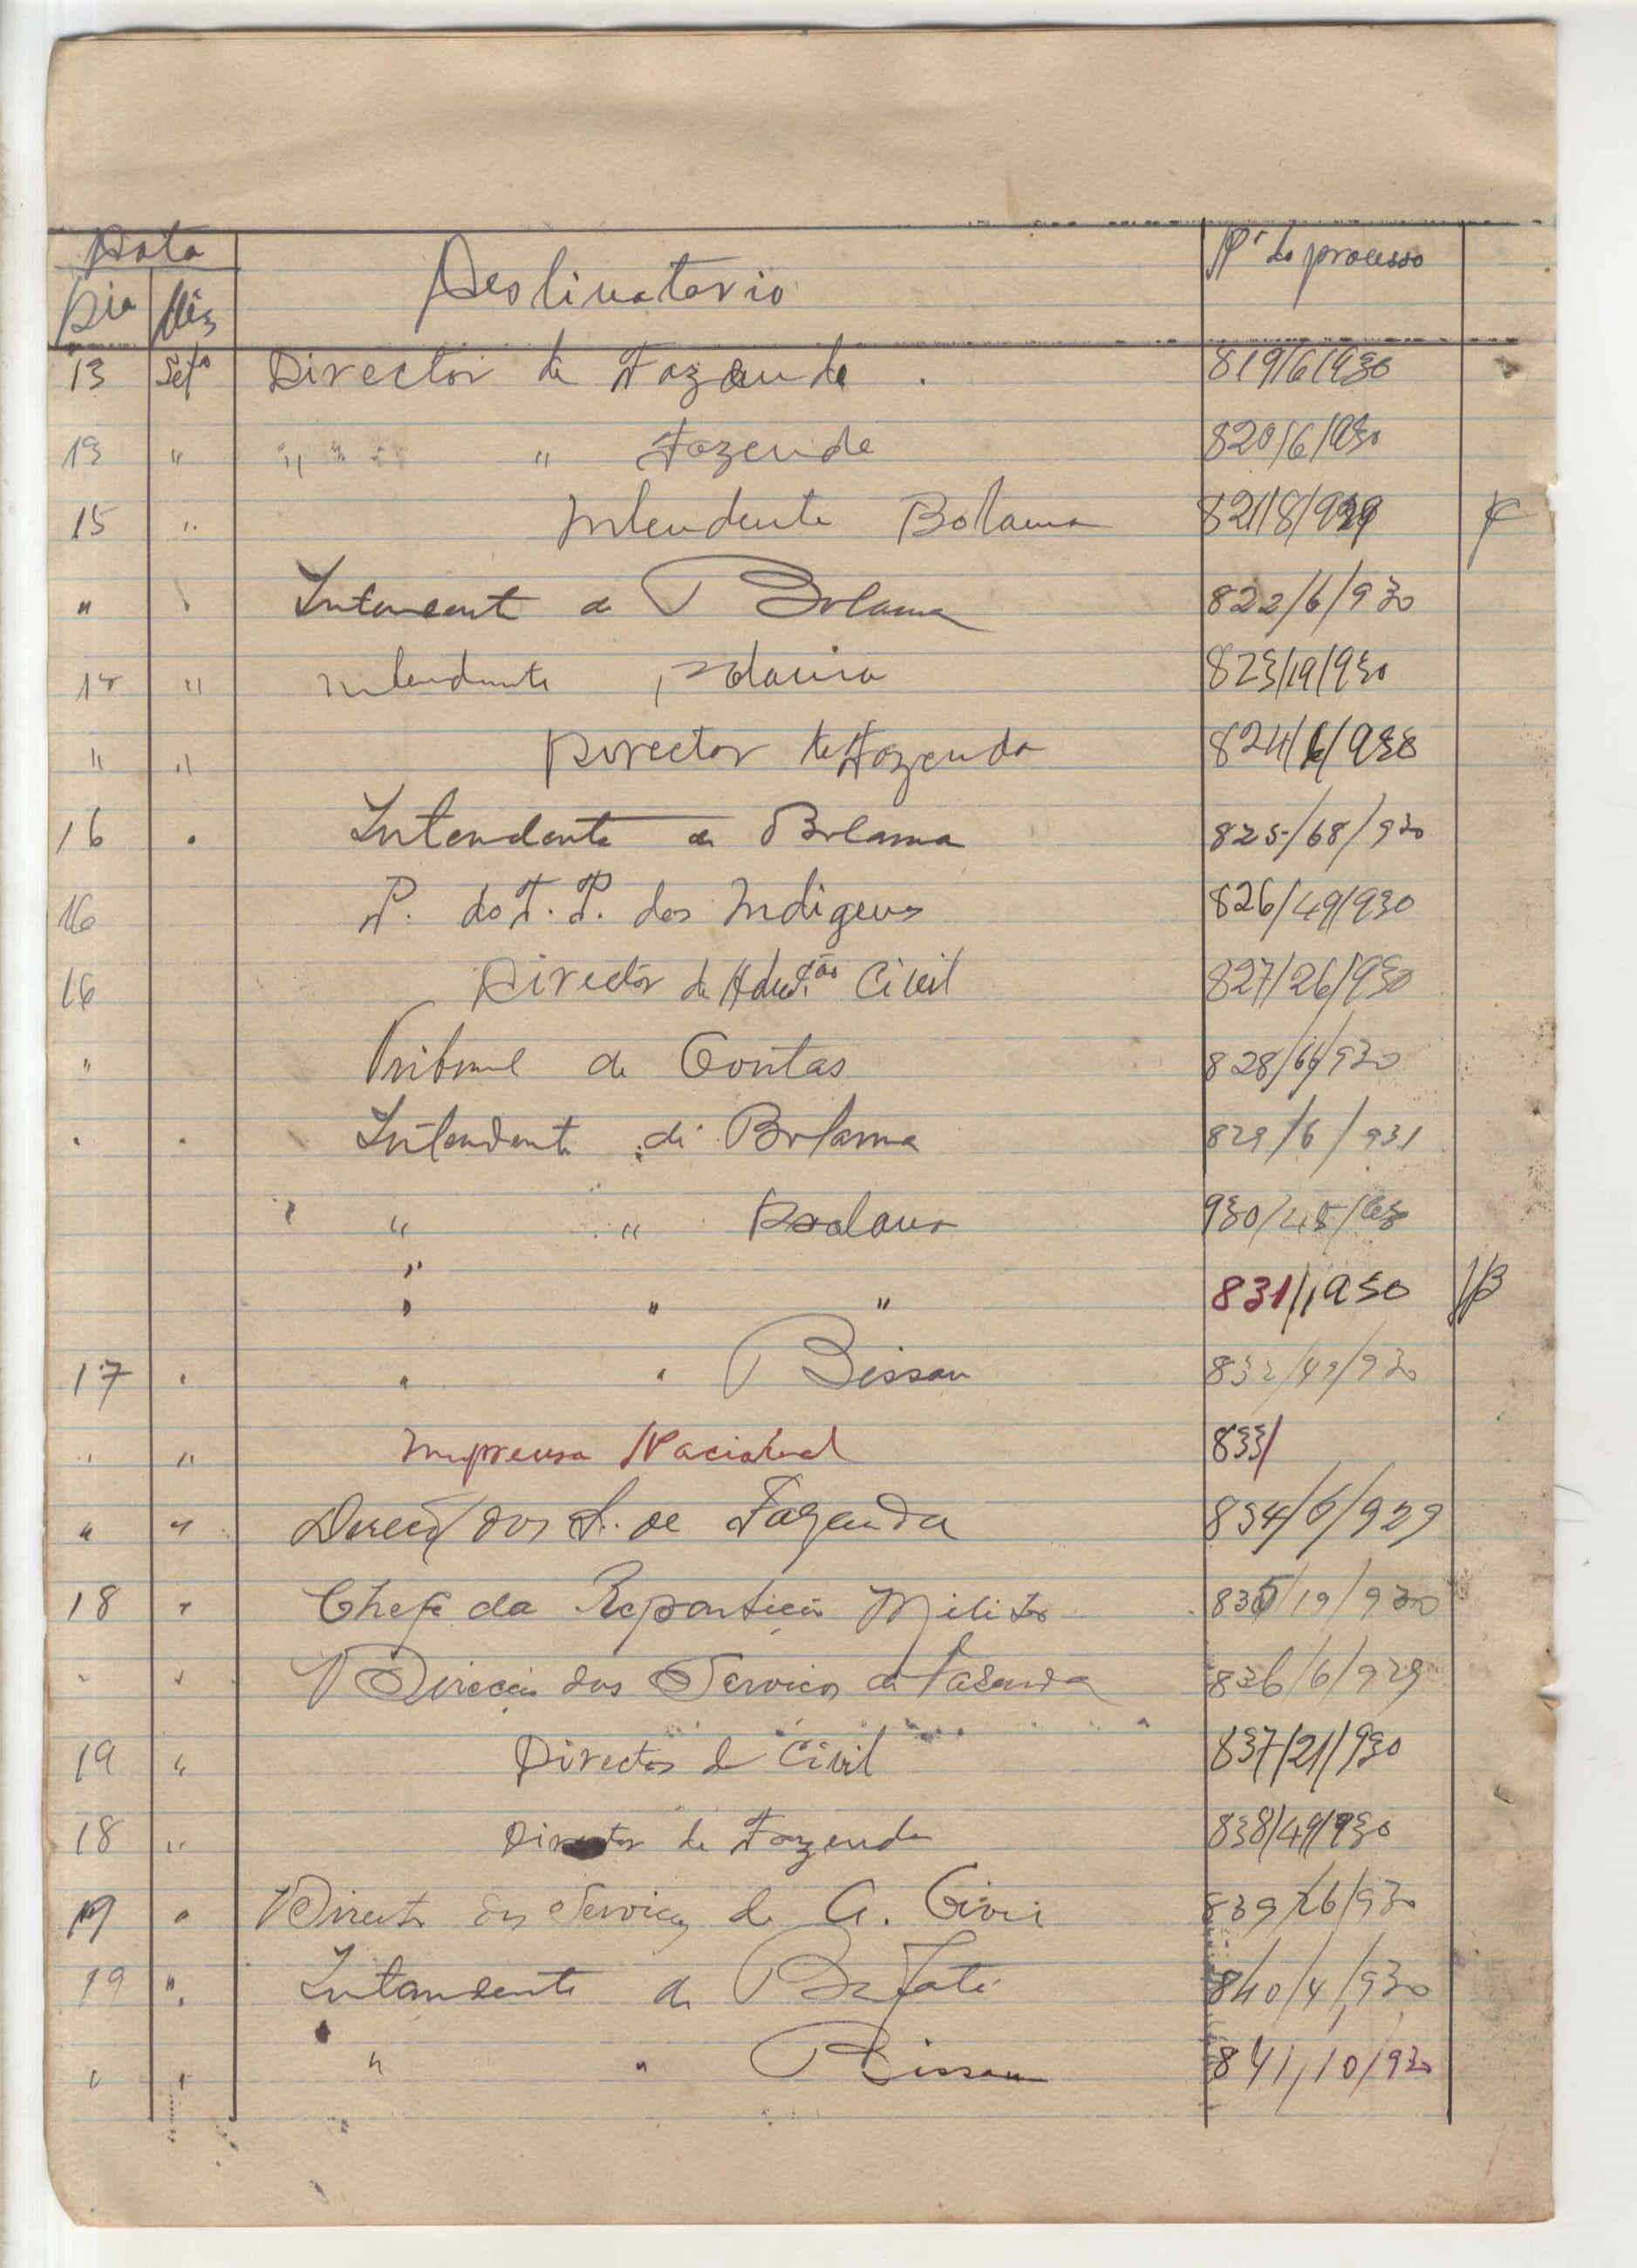 Data
Destinatario
Nº do processo
Dia Mês
13 Setº Director de Fazenda . 819/6/930
13 " " " Fazenda 820/6/930
15 " Intendente Bolama 821/8/929
" Intendent de Bolama 822/6/930
" Intendente Bolama 823/19/930
" " Director de Fazenda 824/6/930
16 " Intendente de Bolama 825/68/930
16 P. do T. P. dos Indigenas 826/49/930
16 Director de Admção Civil 827/26/930
" Tribunal de Contas 828/66/930
" " Intendente de Bolama 829/6/931
" " Bolama 930/45/
" " " 831/1950
17 " " " Bissau 832/49/930
" " Imprensa Nacional 833/
" " Direcç dos S. de Fazenda 834/6/929
18 " Chefe da Repartição Militar 835/19/930
" " Direcção dos Serviços de Fazenda 836/6/929
19 " Director de Civil 837/21/930
18 " Director de Fazenda 838/49/930
19 " Director dos Serviços de A. Civil 839/26/930
19 " Intendente de Bafatá 840/4/930
" " " " Bissau 841/10/930